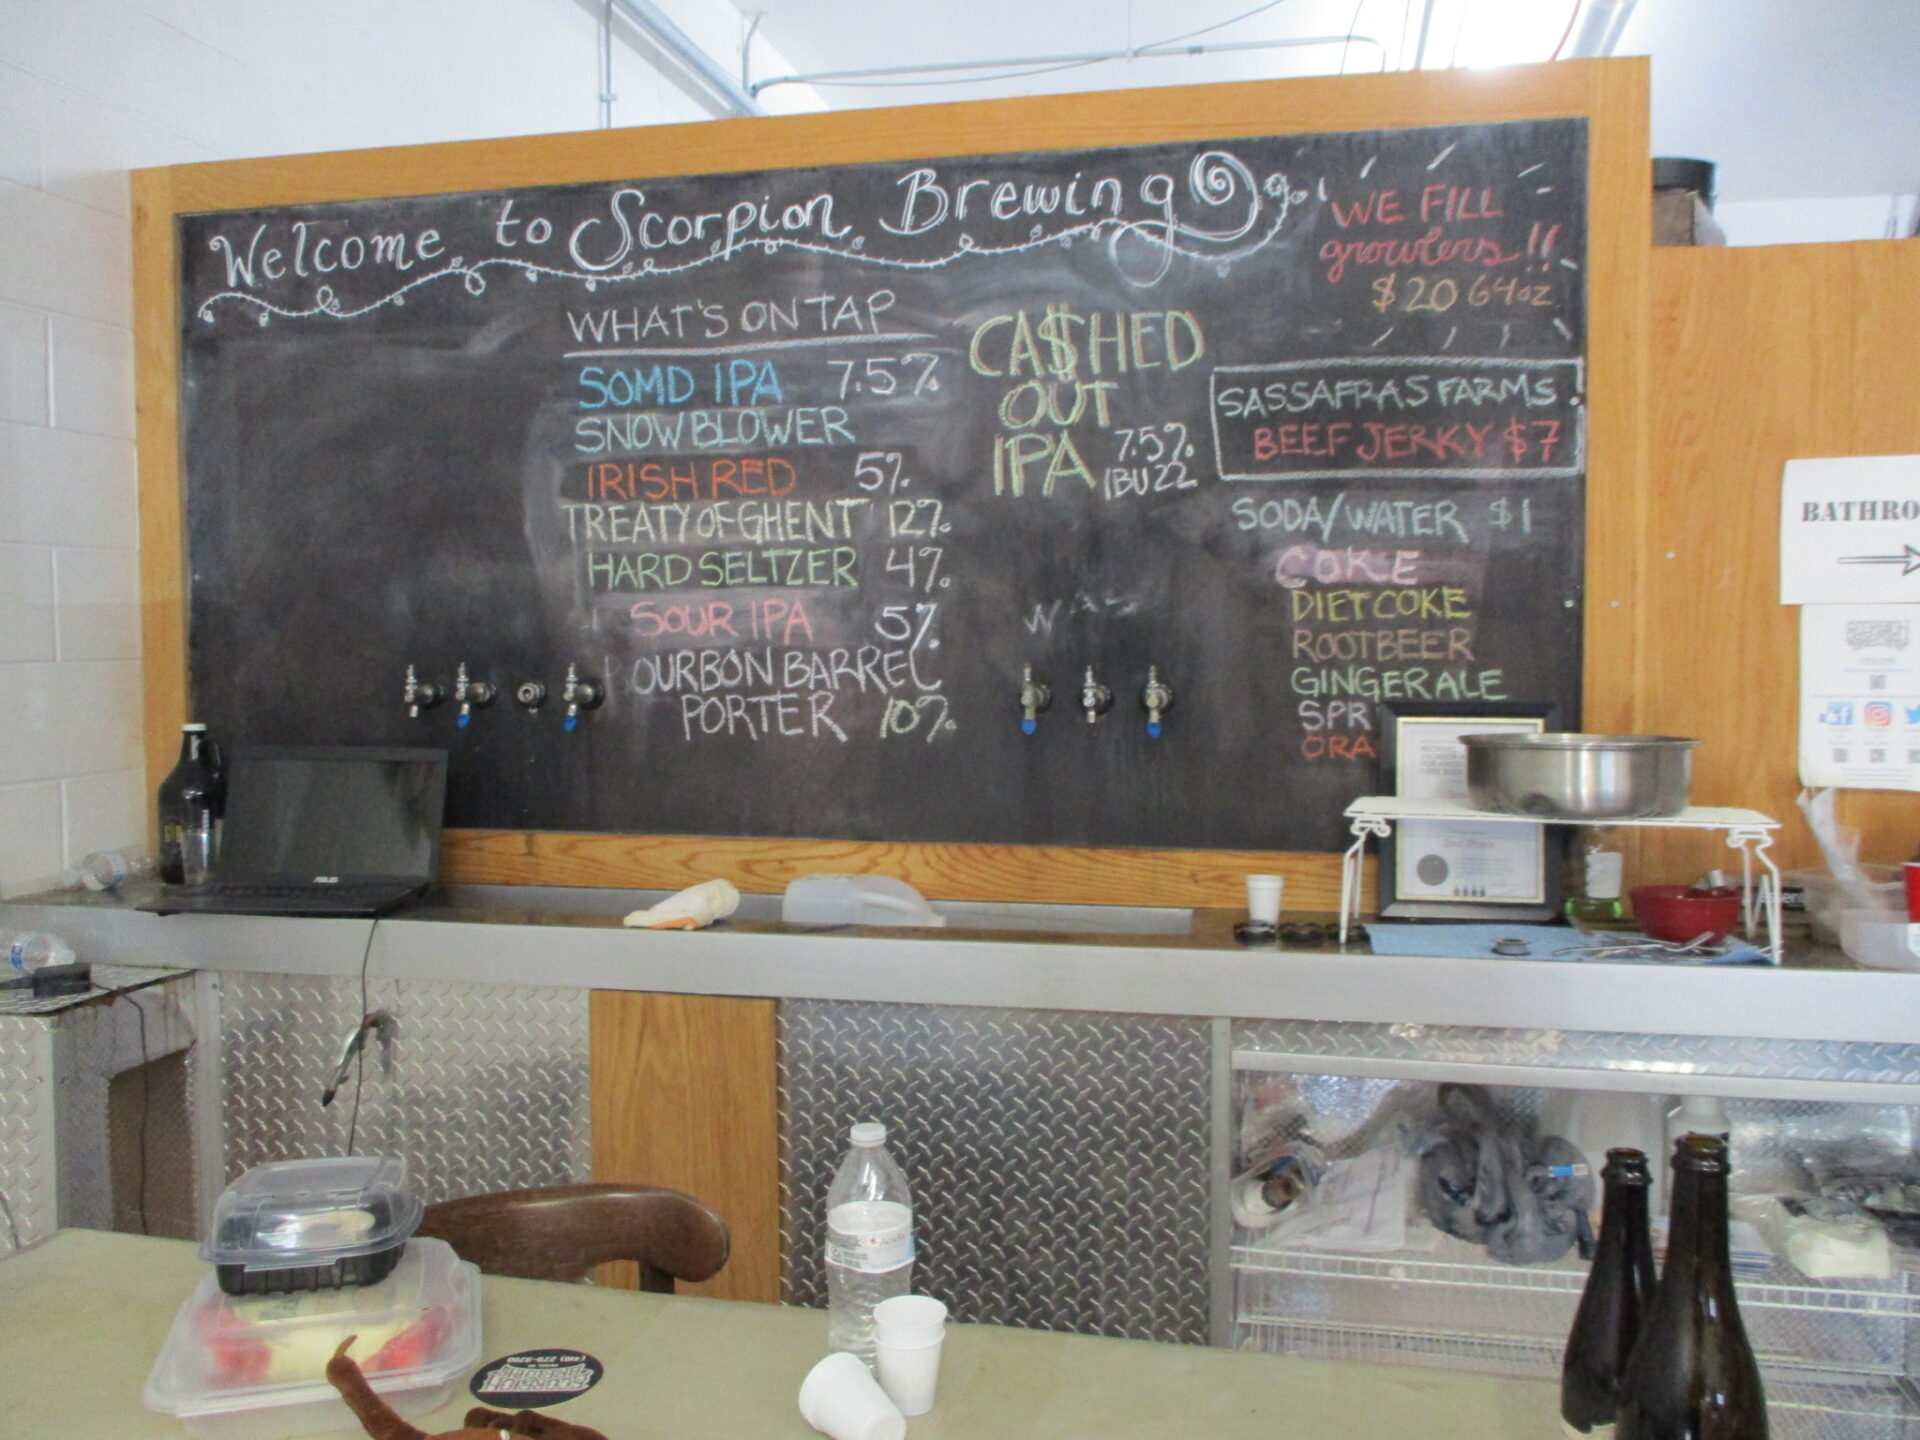 Welcome to Scorpion Brewing
WE FILL
growlers!!
$20 64oz
WHAT'S ON TAP
SOMD IPA 7.5%
SNOWBLOWER
IRISH RED 5%
TREATY OF GHENT 12%
HARD SELTZER 4%
SOUR IPA 5%
OURBON BARREL
PORTER 10%
CA$HED
OUT
IPA 7.5%
IBU 22
SASSAFRAS FARMS
BEEF JERKY $7
SODA/WATER $1
COKE
DIET COKE
ROOTBEER
GINGERALE
SPR
ORA
BATHRO
ASUS
2nd Place
SCORPION
BREWING
(410) 279-9700